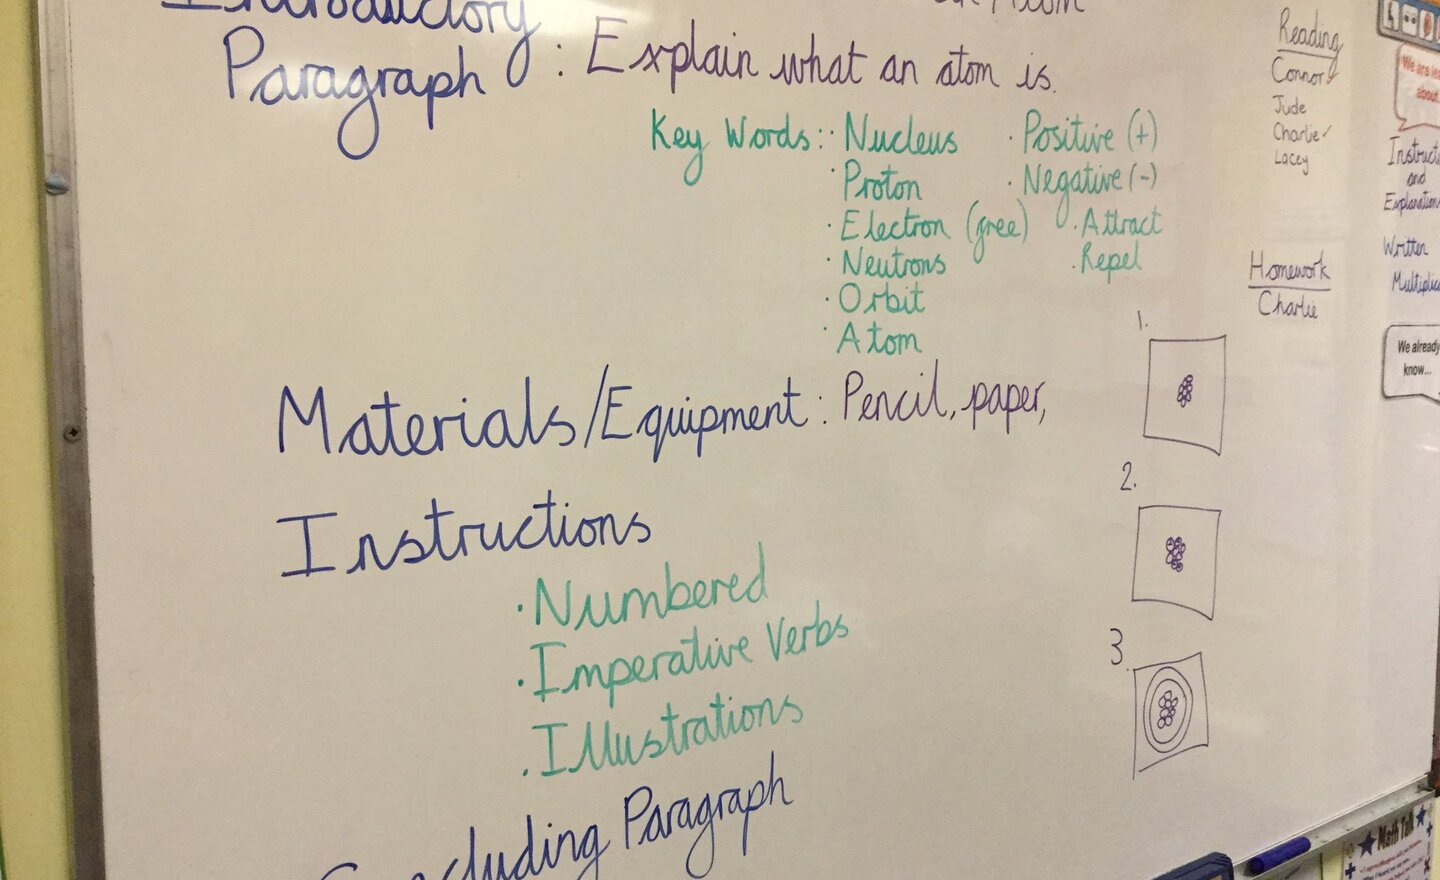 Introductory
Atom
Paragraph : Explain what an atom is.
Key Words : · Nucleus
· Proton
· Electron (free)
· Neutrons
· Orbit
· Atom
· Positive (+)
· Negative (-)
· Attract
· Repel
Materials/Equipment : Pencil, paper,
Instructions
· Numbered
· Imperative Verbs
· Illustrations
Concluding Paragraph
1.
2.
3.
Reading
Connor
Jude
Charlie ✓
Lacey
Homework
Charlie
We are
about
and
Written
We already
know...
Math Talk